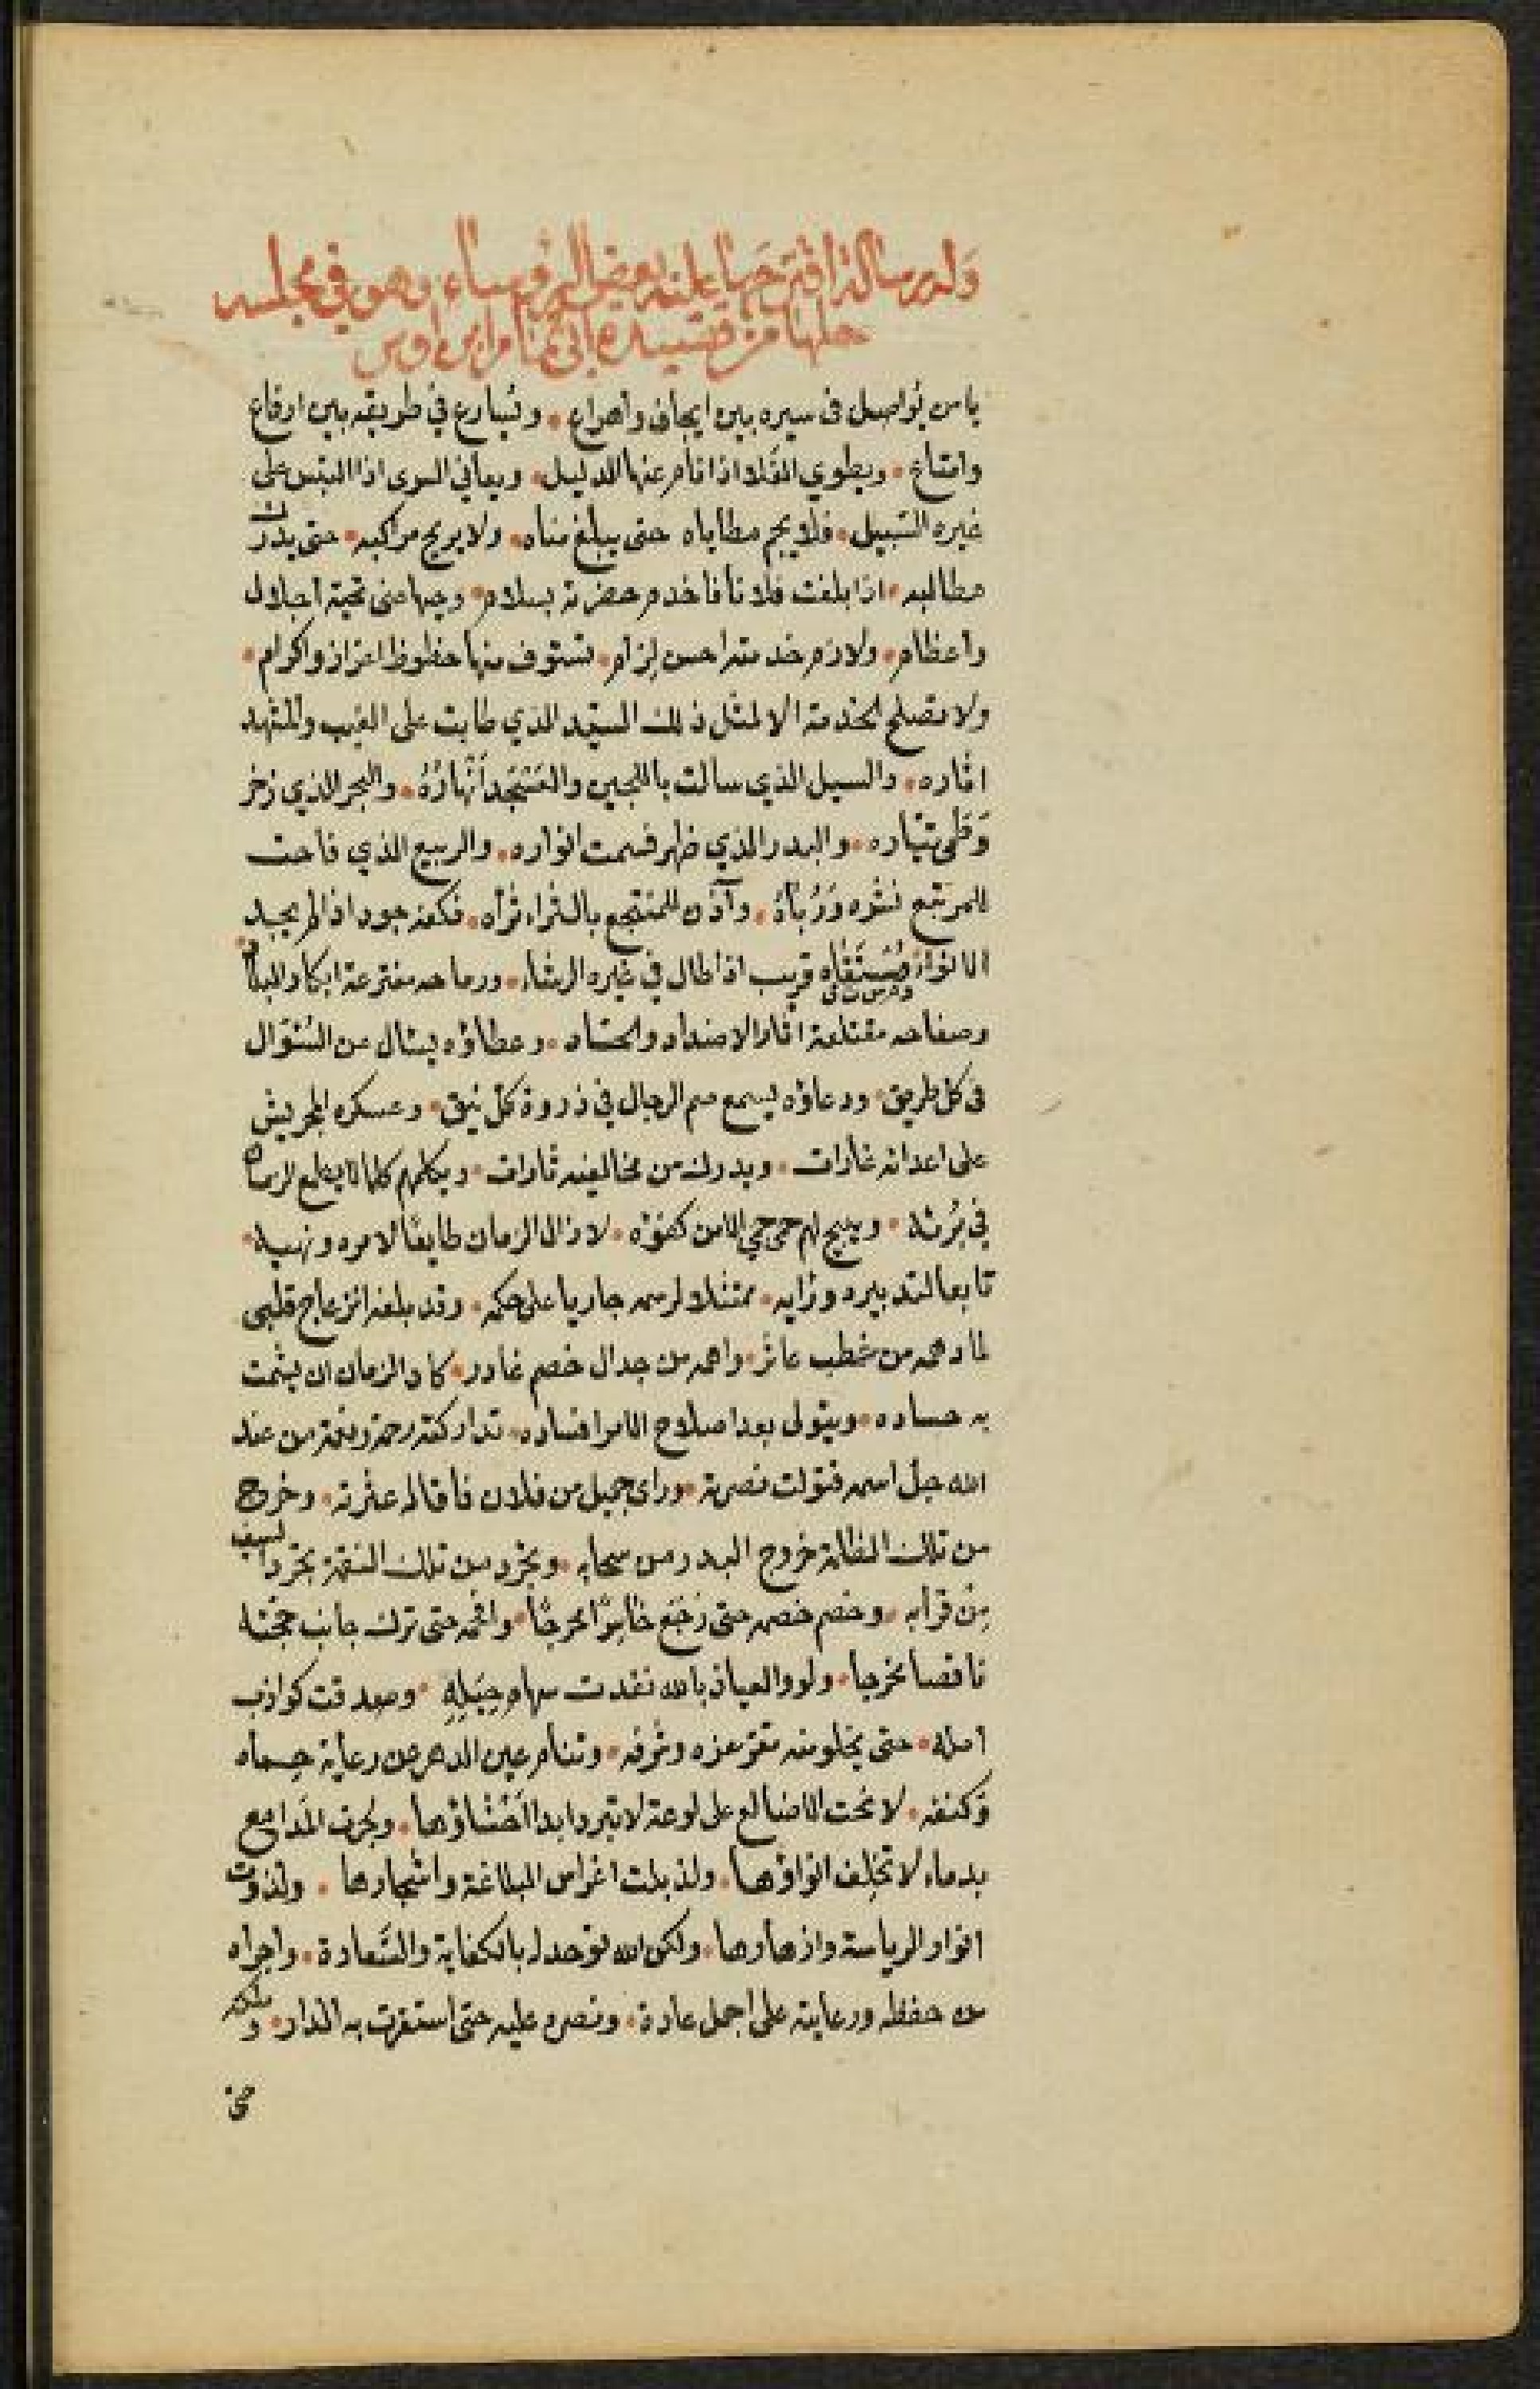 وله رسالة اقترحها عليه بعض الرؤساء وهو في مجلسه
حلها من قصيدة ابي تمام بن اوس
يا من يواصل في سيره بين ايجاف واهراع • ويسارع في طريقه بين ارقاع
وامتاع • ويطوي الفلا اذا نام عنها الدليل • ويعاني السرى اذا التبس على
غيره السبيل • فلا يجم مطاياه حتى يبلغ مناه • ولا يريح مراكبه • حتى يدرك
مطالبه • اذا بلغت فلانا فاخدم حضرته بسلام • وحيها عني تحية اجلال
واعظام • ولازم خدمته احسن لزام • تستوف منها حظوظ اعزاز واكرام •
ولا تصلح الخدمة الا لمثل ذلك السيد الذي طابت على المغيب والمشهد
اثاره • والسيل الذي سالت باللجين والعَسْجَد اَنْهَارُهُ • والبحر الذي زخر
وَطَمى تيّاره • والبدر الذي ظهر فسمت انواره • والربيع الذي فاحت
للمرتبع نشره وَرُباهُ • وآذن للمنتجع بالثراء ثراه • فكفه جود اذا لم يجد
الانواء مُسْتَقاه قريب اذا طال في غيره الرشاء • ورماحه مفترعة ابكار البلاد
وصفاحه مقتلعة اثار الاضداد والحساد • وعطاؤه يسال عن السُؤال
في كل طريق • ودعاؤه يسمع صم الرجال في ذروة كل نيق • وعسكره المجر يشن
على اعدائه غارات • ويدرك من مخالفيه ثارات • ويكلمهم كلما لا يطمع الزمان
في بُرئه • ويبيح لهم حمى حجي الامن كفؤه • لا زال الزمان طايعا لامره ونهيه •
تابعا لتدبيره ورايه • ممتثلا لرسمه جاريا على حكمه • وقد بلغه انزعاج قلبي
لما دهمه من خطب عاثر • واهمه من جدال خصم غادر • كاد الزمان ان يشمت
به حساده • ويتولى بعد اصلاح الامر افساده • تداركته رحمة ونعمة من عند
الله جل اسمه فتولت نصرته • وراى جميل من فلان فاقال عثرته • وخرج
من تلك المظلمة خروج البدر من سحابه • وتجرد من تلك النقمة تجرد السيف
مِن قرابه • وخصم خصمه حتى رَجَع خايبًا محرجًا • واقحمه حتى ترك جانب حجته
ناقصا مخرجا • ولو والعياذ بالله نفدت سهام حِيَلِهِ • وصدقت كواذب
امله • حتى يخلو منه مقر عزه وشرفه • وتنام عين الدهر عن رعاية حماه
وَكنفه • لانحت الاضالع على لوعة لا تبرد ابدا اَحْشاؤها • ولجرت المَدامع
بدماء لا تخلف انواؤها • ولذبلت اغراس البلاغة واشجارها • ولذوت
انوار الرياسة وازهارها • ولكن الله توحد له بالكفاية والسَّعادة • واجراه
من حفظه ورعايته على اجمل عادة • ونصره عليه حتى استقرت به الدار • وملكه